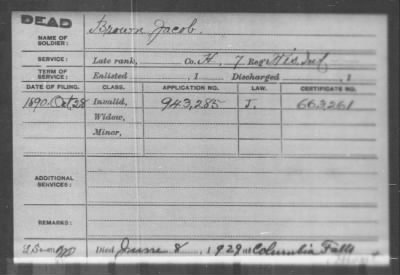 DEAD
NAME OF SOLDIER: Brown Jacob.
SERVICE: Late rank, Co. H, 7 Reg't Wis Inf
TERM OF SERVICE: Enlisted , 1 Discharged , 1
DATE OF FILING. CLASS. APPLICATION NO. LAW. CERTIFICATE NO.
1890. Oct. 28 Invalid, 943,285 J. 663261
Widow,
Minor,
ADDITIONAL SERVICES:
REMARKS:
Died June 8, 1929 at Columbia Falls